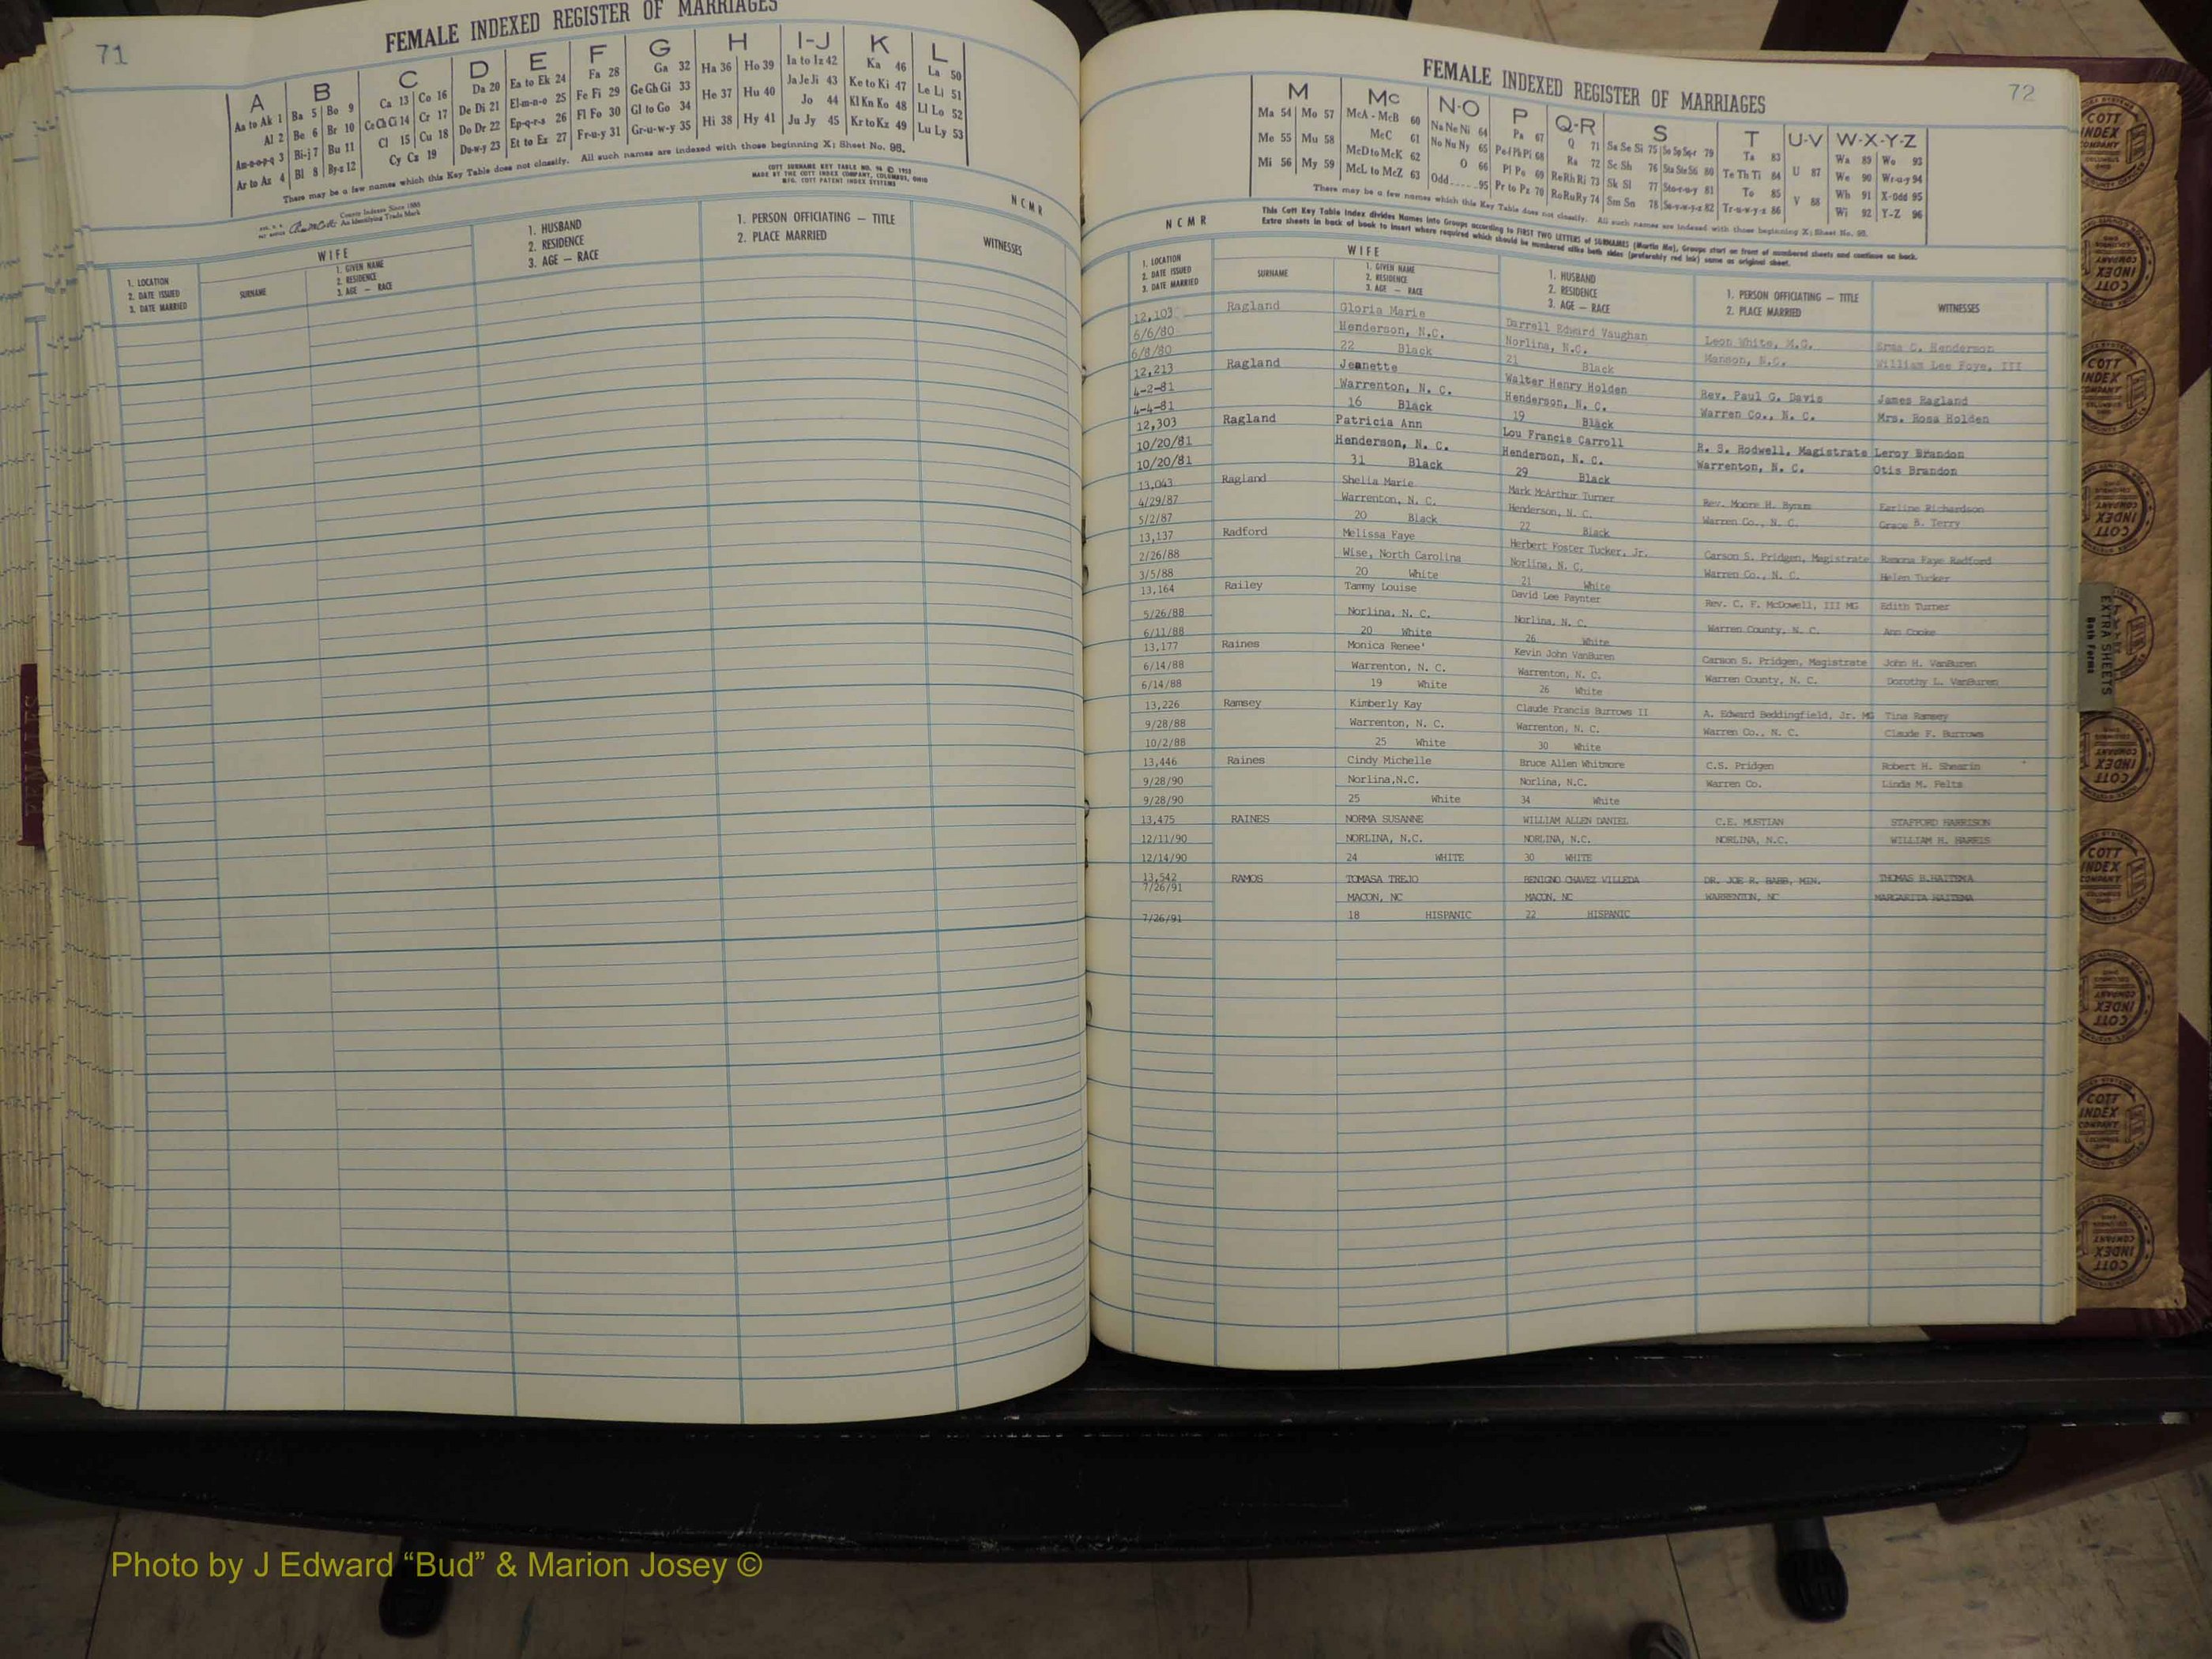 71
FEMALE INDEXED REGISTER OF MARRIAGES
A B C D E F G H I-J K L
Aa to Ak 1 Ba 5 Bo 9 Ca 13 Co 16 Da 20 Ea to Ek 24 Fa 28 Ga 32 Ha 36 Ho 39 Ia to Iz 42 Ka 46 La 50
Al 2 Be 6 Br 10 Ce Ch Ci 14 Cr 17 De Di 21 El-m-n-o 25 Fe Fi 29 Ge Gh Gi 33 He 37 Hu 40 Ja Je Ji 43 Ke to Ki 47 Le Li 51
Am-n-o-p-q 3 Bi-j 7 Bu 11 Cl 15 Cu 18 Do Dr 22 Ep-q-r-s 26 Fl Fo 30 Gl to Go 34 Hi 38 Hy 41 Jo 44 Kl Kn Ko 48 Ll Lo 52
Ar to Az 4 Bl 8 By-z 12 Cy Cz 19 Du-w-y 23 Et to Ez 27 Fr-u-y 31 Gr-u-w-y 35 Ju Jy 45 Kr to Kz 49 Lu Ly 53
There may be a few names which this Key Table does not classify. All such names are indexed with those beginning X; Sheet No. 98.
COTT SURNAME KEY TABLE NO. 96 © 1955
MADE BY THE COTT INDEX COMPANY, COLUMBUS, OHIO
MFG. COTT PATENT INDEX SYSTEMS
County Indexes Since 1888
An Identifying Trade Mark
NCMR
1. LOCATION
2. DATE ISSUED
3. DATE MARRIED
WIFE
SURNAME
1. GIVEN NAME
2. RESIDENCE
3. AGE — RACE
1. HUSBAND
2. RESIDENCE
3. AGE — RACE
1. PERSON OFFICIATING — TITLE
2. PLACE MARRIED
WITNESSES
FEMALES
72
FEMALE INDEXED REGISTER OF MARRIAGES
M Mc N-O P Q-R S T U-V W-X-Y-Z
Ma 54 Mo 57 McA - McB 60 Na Ne Ni 64 Pa 67 Q 71 Sa Se Si 75 So Sp Sq-r 79 Ta 83 U 87 Wa 89 Wo 93
Me 55 Mu 58 McC 61 No Nu Ny 65 Pe-f Ph Pi 68 Ra 72 Sc Sh 76 Sta Ste St6 80 Te Th Ti 84 V 88 We 90 Wr-u-y 94
Mi 56 My 59 McD to McK 62 O 66 Pl Po 69 Re Rh Ri 73 Sk Sl 77 Sto-r-u-y 81 To 85 Wh 91 X-Odd 95
McL to McZ 63 Odd.....95 Pr to Pz 70 Ro Ru Ry 74 Sm Sn 78 Su-v-w-y-z 82 Tr-u-w-y-z 86 Wi 92 Y-Z 96
There may be a few names which this Key Table does not classify. All such names are indexed with those beginning X; Sheet No. 98.
NCMR
This Cott Key Table Index divides Names into Groups according to FIRST TWO LETTERS of SURNAMES (Martin Ma), Groups start on front of numbered sheets and continue on back.
Extra sheets in back of book to insert where required which should be numbered alike both sides (preferably red ink) same as original sheet.
1. LOCATION
2. DATE ISSUED
3. DATE MARRIED
WIFE
SURNAME
1. GIVEN NAME
2. RESIDENCE
3. AGE — RACE
1. HUSBAND
2. RESIDENCE
3. AGE — RACE
1. PERSON OFFICIATING — TITLE
2. PLACE MARRIED
WITNESSES
12,103 Ragland Gloria Marie Darrell Edward Vaughan Leon White, M.G. Erma C. Henderson
6/6/80 Henderson, N.C. Norlina, N.C. Manson, N.C. William Lee Foye, III
6/8/80 22 Black 21 Black
12,213 Ragland Jeanette Walter Henry Holden Rev. Paul G. Davis James Ragland
4-2-81 Warrenton, N. C. Henderson, N. C. Warren Co., N. C. Mrs. Rosa Holden
4-4-81 16 Black 19 Black
12,303 Ragland Patricia Ann Lou Francis Carroll R. S. Rodwell, Magistrate Leroy Brandon
10/20/81 Henderson, N. C. Henderson, N. C. Warrenton, N. C. Otis Brandon
10/20/81 31 Black 29 Black
13,043 Ragland Shelia Marie Mark McArthur Turner Rev. Moore H. Bynum Earline Richardson
4/29/87 Warrenton, N. C. Henderson, N. C. Warren Co., N. C. Grace B. Terry
5/2/87 20 Black 22 Black
13,137 Radford Melissa Faye Herbert Foster Tucker, Jr. Carson S. Pridgen, Magistrate Ramona Faye Radford
2/26/88 Wise, North Carolina Norlina, N. C. Warren Co., N. C. Helen Tucker
3/5/88 20 White 21 White
13,164 Railey Tammy Louise David Lee Paynter Rev. C. F. McDowell, III MG Edith Turner
5/26/88 Norlina, N. C. Norlina, N. C. Warren County, N. C. Ann Cooke
6/11/88 20 White 26 White
13,177 Raines Monica Renee' Kevin John VanBuren Carson S. Pridgen, Magistrate John H. VanBuren
6/14/88 Warrenton, N. C. Warrenton, N. C. Warren County, N. C. Dorothy L. VanBuren
6/14/88 19 White 26 White
13,226 Ramsey Kimberly Kay Claude Francis Burrows II A. Edward Beddingfield, Jr. MG Tina Ramsey
9/28/88 Warrenton, N. C. Warrenton, N. C. Warren Co., N. C. Claude F. Burrows
10/2/88 25 White 30 White
13,446 Raines Cindy Michelle Bruce Allen Whitmore C.S. Pridgen Robert H. Shearin
9/28/90 Norlina,N.C. Norlina, N.C. Warren Co. Linda M. Felts
9/28/90 25 White 34 White
13,475 RAINES NORMA SUSANNE WILLIAM ALLEN DANIEL C.E. MUSTIAN STAFFORD HARRISON
12/11/90 NORLINA, N.C. NORLINA, N.C. NORLINA, N.C. WILLIAM H. HARRIS
12/14/90 24 WHITE 30 WHITE
13,542 RAMOS TOMASA TREJO BENIGNO CHAVEZ VILLEDA DR. JOE R. BABB, MIN. THOMAS B.HAITEMA
7/26/91 MACON, NC MACON, NC WARRENTON, NC MARGARITA HAITEMA
7/26/91 18 HISPANIC 22 HISPANIC
EXTRA SHEETS
Both Forms
COTT INDEX COMPANY
Photo by J Edward “Bud” & Marion Josey ©